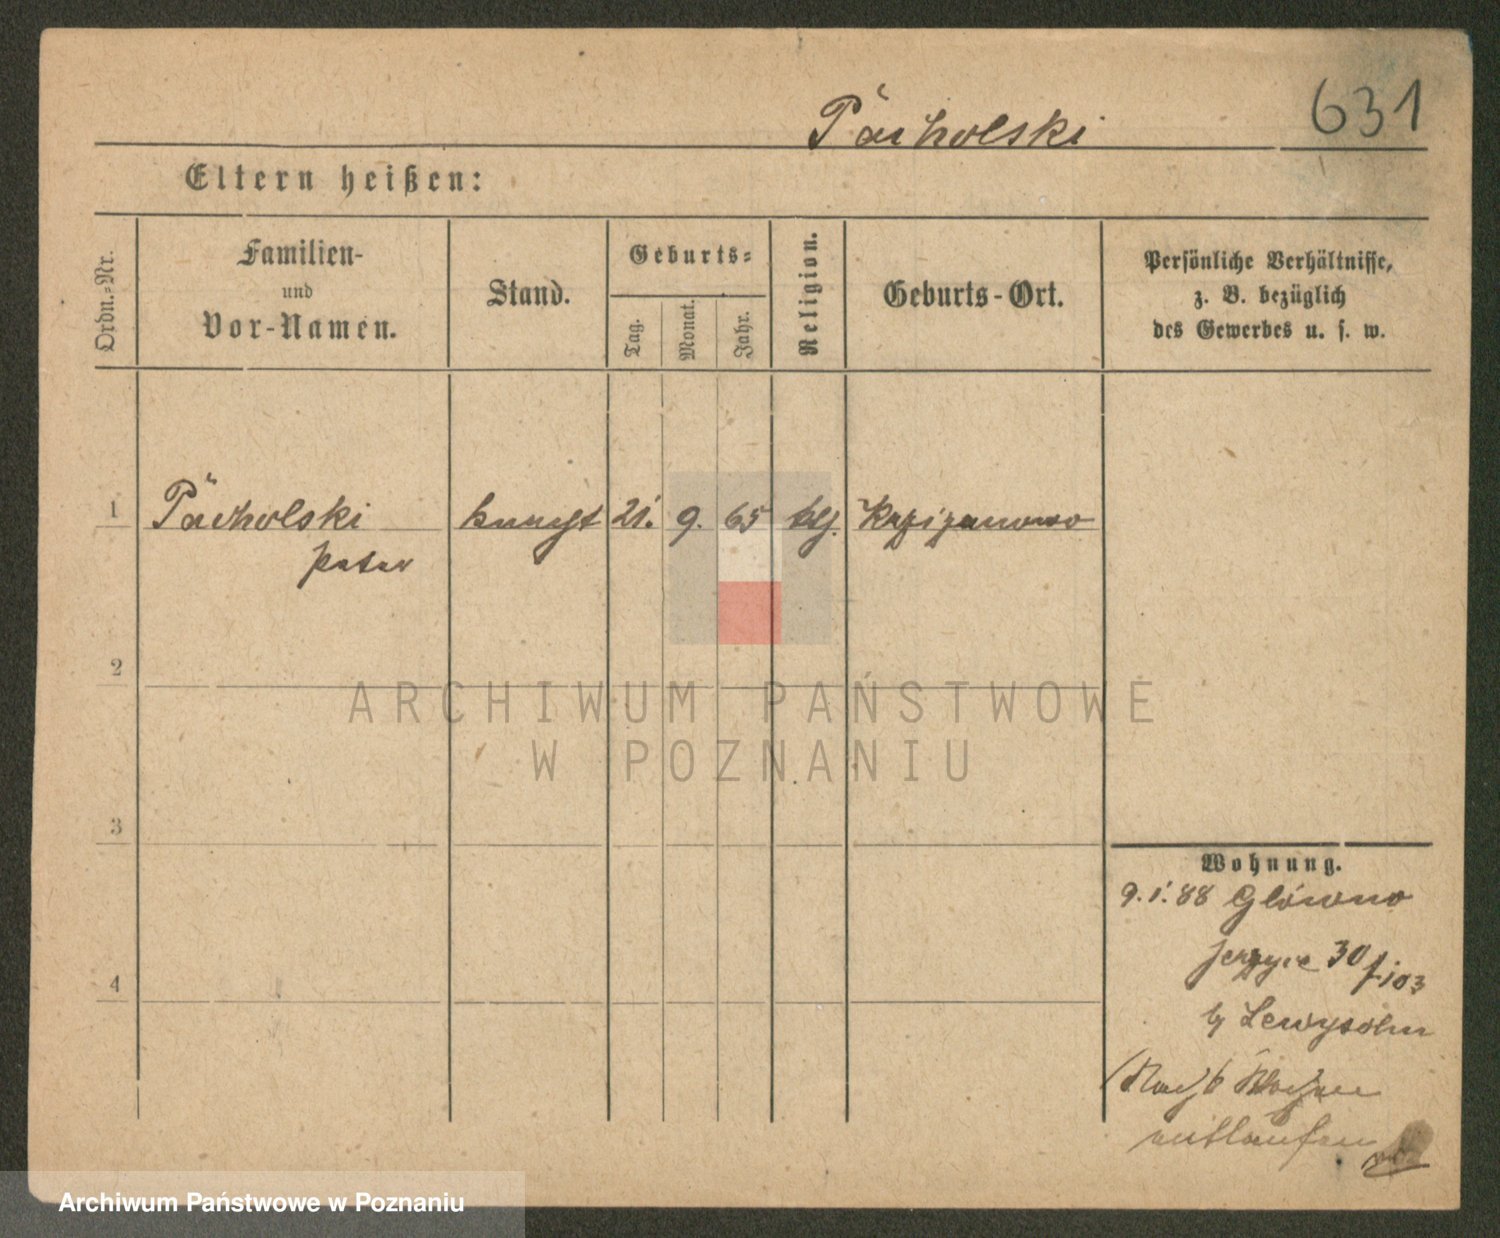 Pacholski 631
Eltern heißen:
Ordn.-Nr. Familien- und Vor-Namen. Stand. Geburts- Tag. Monat. Jahr. Religion. Geburts-Ort. Persönliche Verhältnisse, z. B. bezüglich des Gewerbes u. s. w.
1 Pacholski Knecht 21. 9. 65 klj.
Peter
2
3
4
Wohnung.
9.1.88 Glówno
Jerzyce 30
b/ Lewysohn
entlaufen
ARCHIWUM PAŃSTWOWE
W POZNANIU
Archiwum Państwowe w Poznaniu